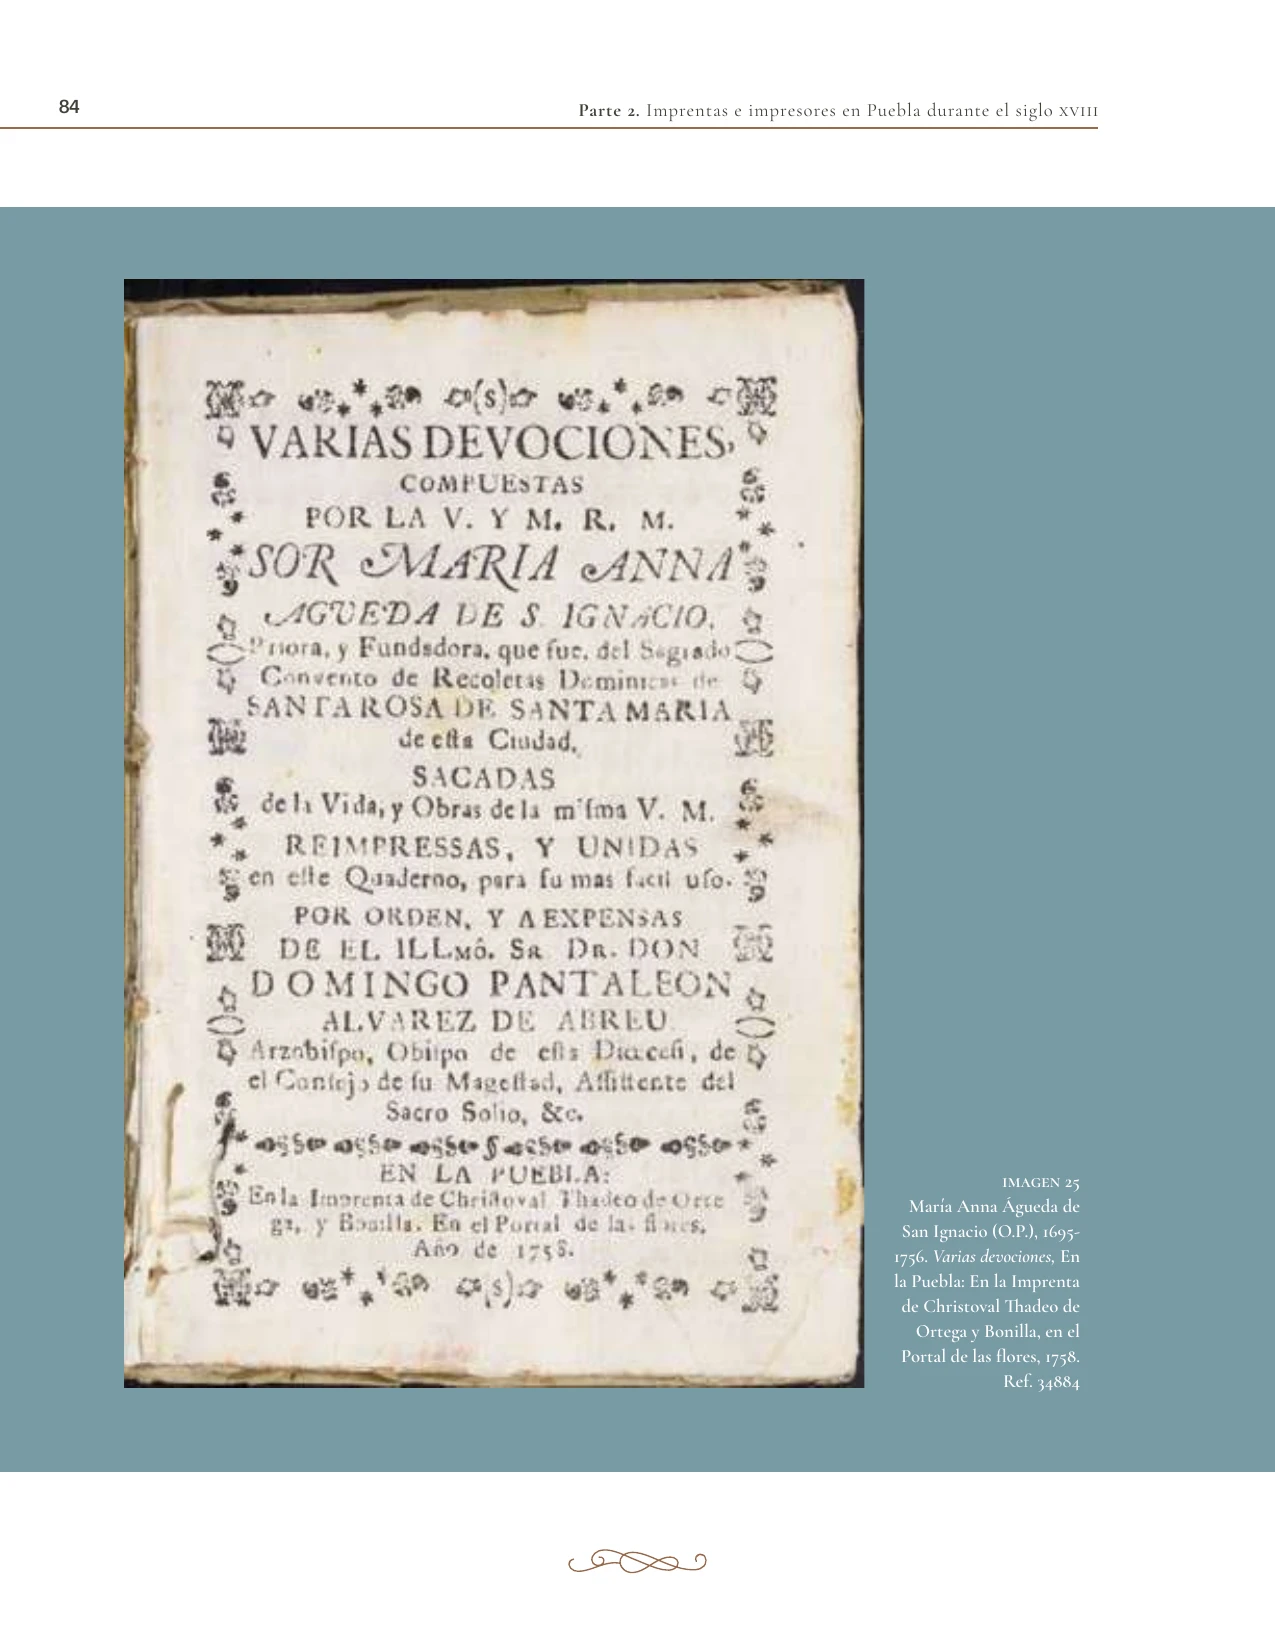 84
Parte 2. Imprentas e impresores en Puebla durante el siglo XVIII
(s)
VARIAS DEVOCIONES,
COMPUESTAS
POR LA V. Y M. R. M.
SOR MARIA ANNA
AGUEDA DE S. IGNACIO,
Priora, y Fundadora, que fue, del Sagrado
Convento de Recoletas Dominicas de
SANTA ROSA DE SANTA MARIA
de esta Ciudad,
SACADAS
de la Vida, y Obras de la misma V. M.
REIMPRESSAS, Y UNIDAS
en este Quaderno, para su mas facil uso.
POR ORDEN, Y A EXPENSAS
DE EL ILLMÔ. SR. DR. DON
DOMINGO PANTALEON
ALVAREZ DE ABREU
Arzobispo, Obispo de esta Diœcesi, de
el Consejo de su Magestad, Assistente del
Sacro Solio, &c.
EN LA PUEBLA:
En la Imprenta de Christoval Thadeo de Orte
ga, y Bonilla. En el Portal de las flores.
Año de 1758.
(s)
IMAGEN 25
María Anna Águeda de
San Ignacio (O.P.), 1695-
1756. Varias devociones, En
la Puebla: En la Imprenta
de Christoval Thadeo de
Ortega y Bonilla, en el
Portal de las flores, 1758.
Ref. 34884